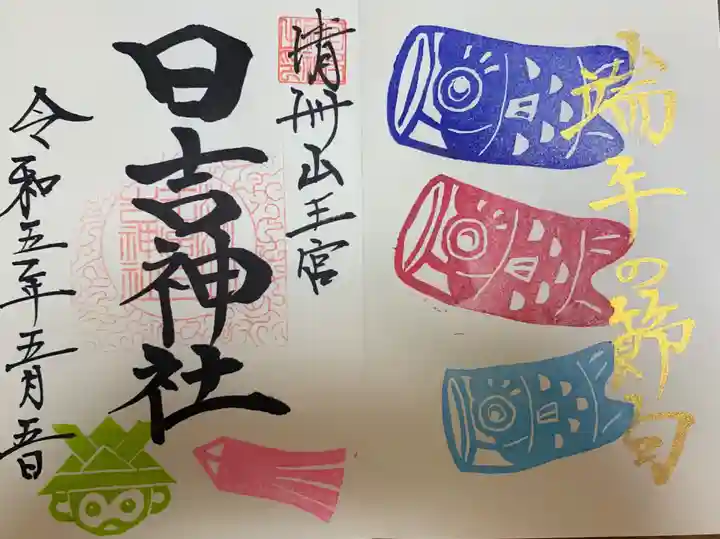 端午の節句
清州山王宮
日吉神社
令和五年五月五日